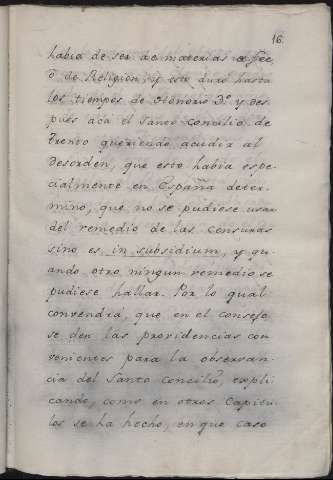 16.
habia de ser de materias de Fee
ô de Religion, y esto duró hasta
los tiempos de Honorio 3º y des-
pues acá el Santo Concilio de
Trento queriendo acudir al
desorden, que esto habia espe-
cialmente en España deter-
mino, que no se pudiese usar
del remedio de las censuras
sino es in subsidium, y qu-
ando otro ningun remedio se
pudiese hallar. Por lo qual
convendrá, que en el consejo
se den las providencias con-
venientes para la observan-
cia del Santo Concilio, expli-
cando, como en otros Capitu-
los se ha hecho, en que caso